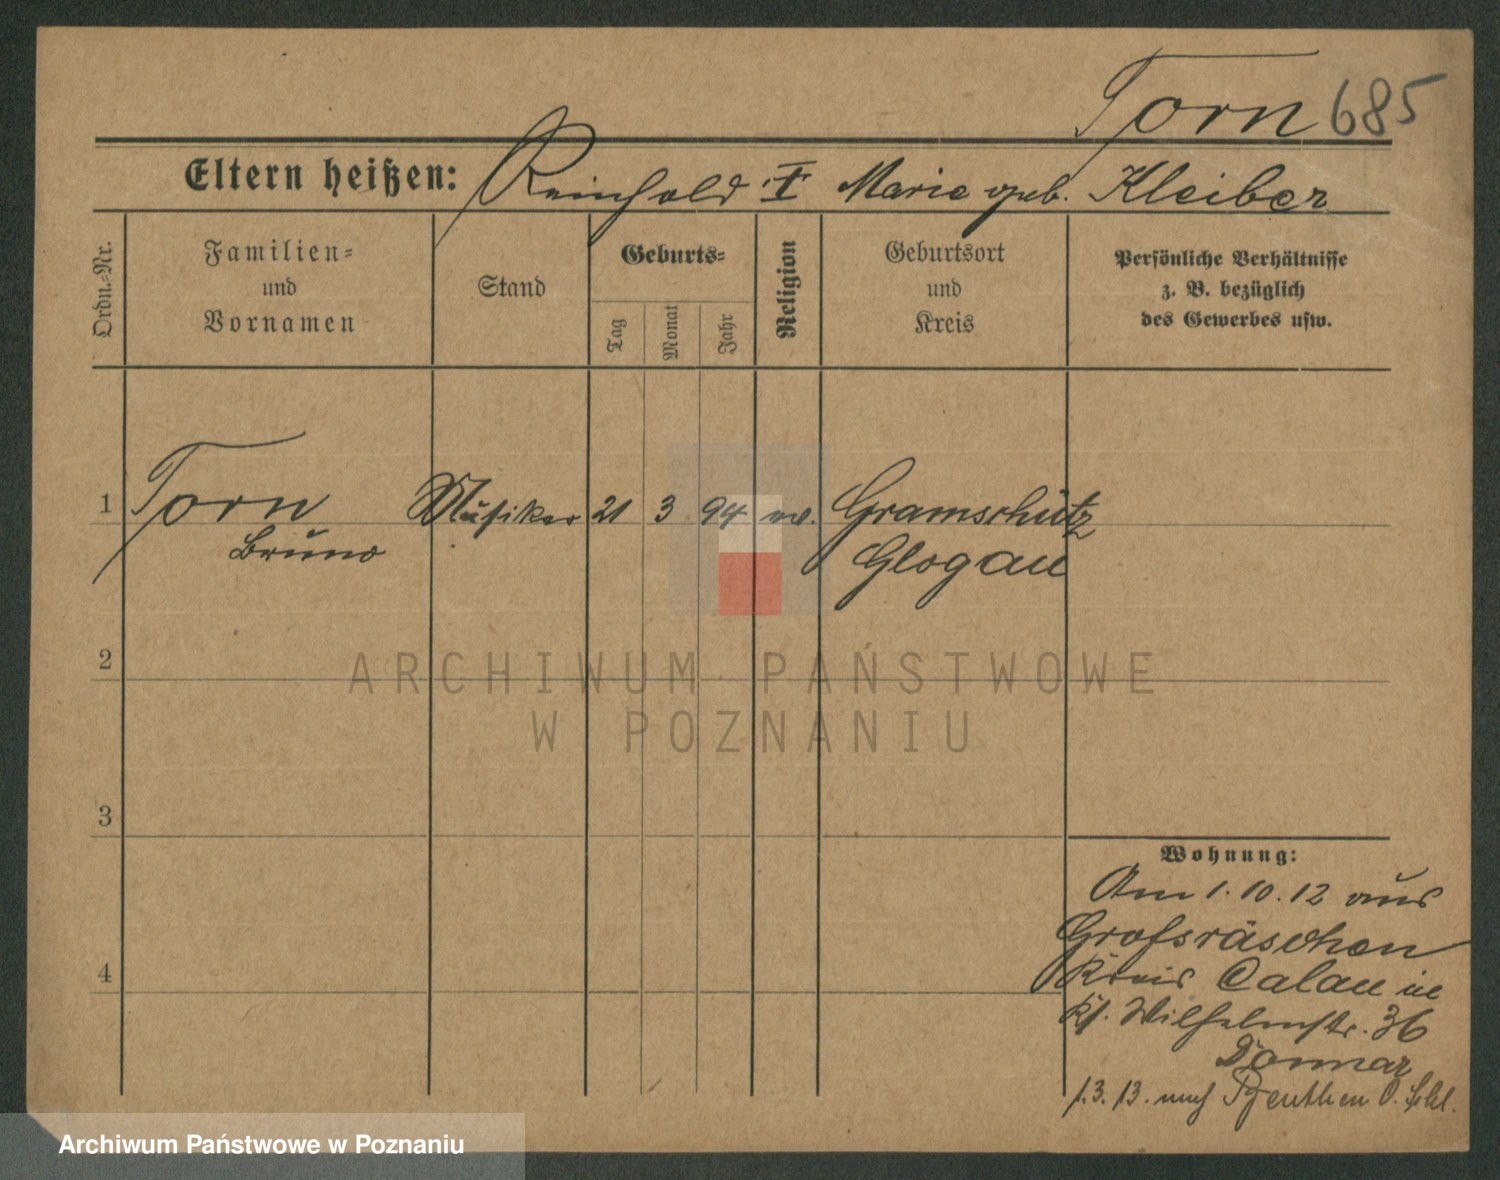 Torn 685
Eltern heißen: Reinhold I Marie geb. Kleiber
Ordn.-Nr.
Familien-
und
Vornamen
Stand
Geburts-
Tag
Monat
Jahr
Religion
Geburtsort
und
Kreis
Persönliche Verhältnisse
z. B. bezüglich
des Gewerbes usw.
1 Torn Musiker 21 3 94 ev. Gramschütz
Bruno Glogau
2
3
4
ARCHIWUM PAŃSTWOWE
W POZNANIU
Wohnung:
Am 1.10.12 aus
Grossräschen
Kreis Calau in
Wilhelmstr. 36
1.3.13. nach Beuthen O. Schl.
Archiwum Państwowe w Poznaniu